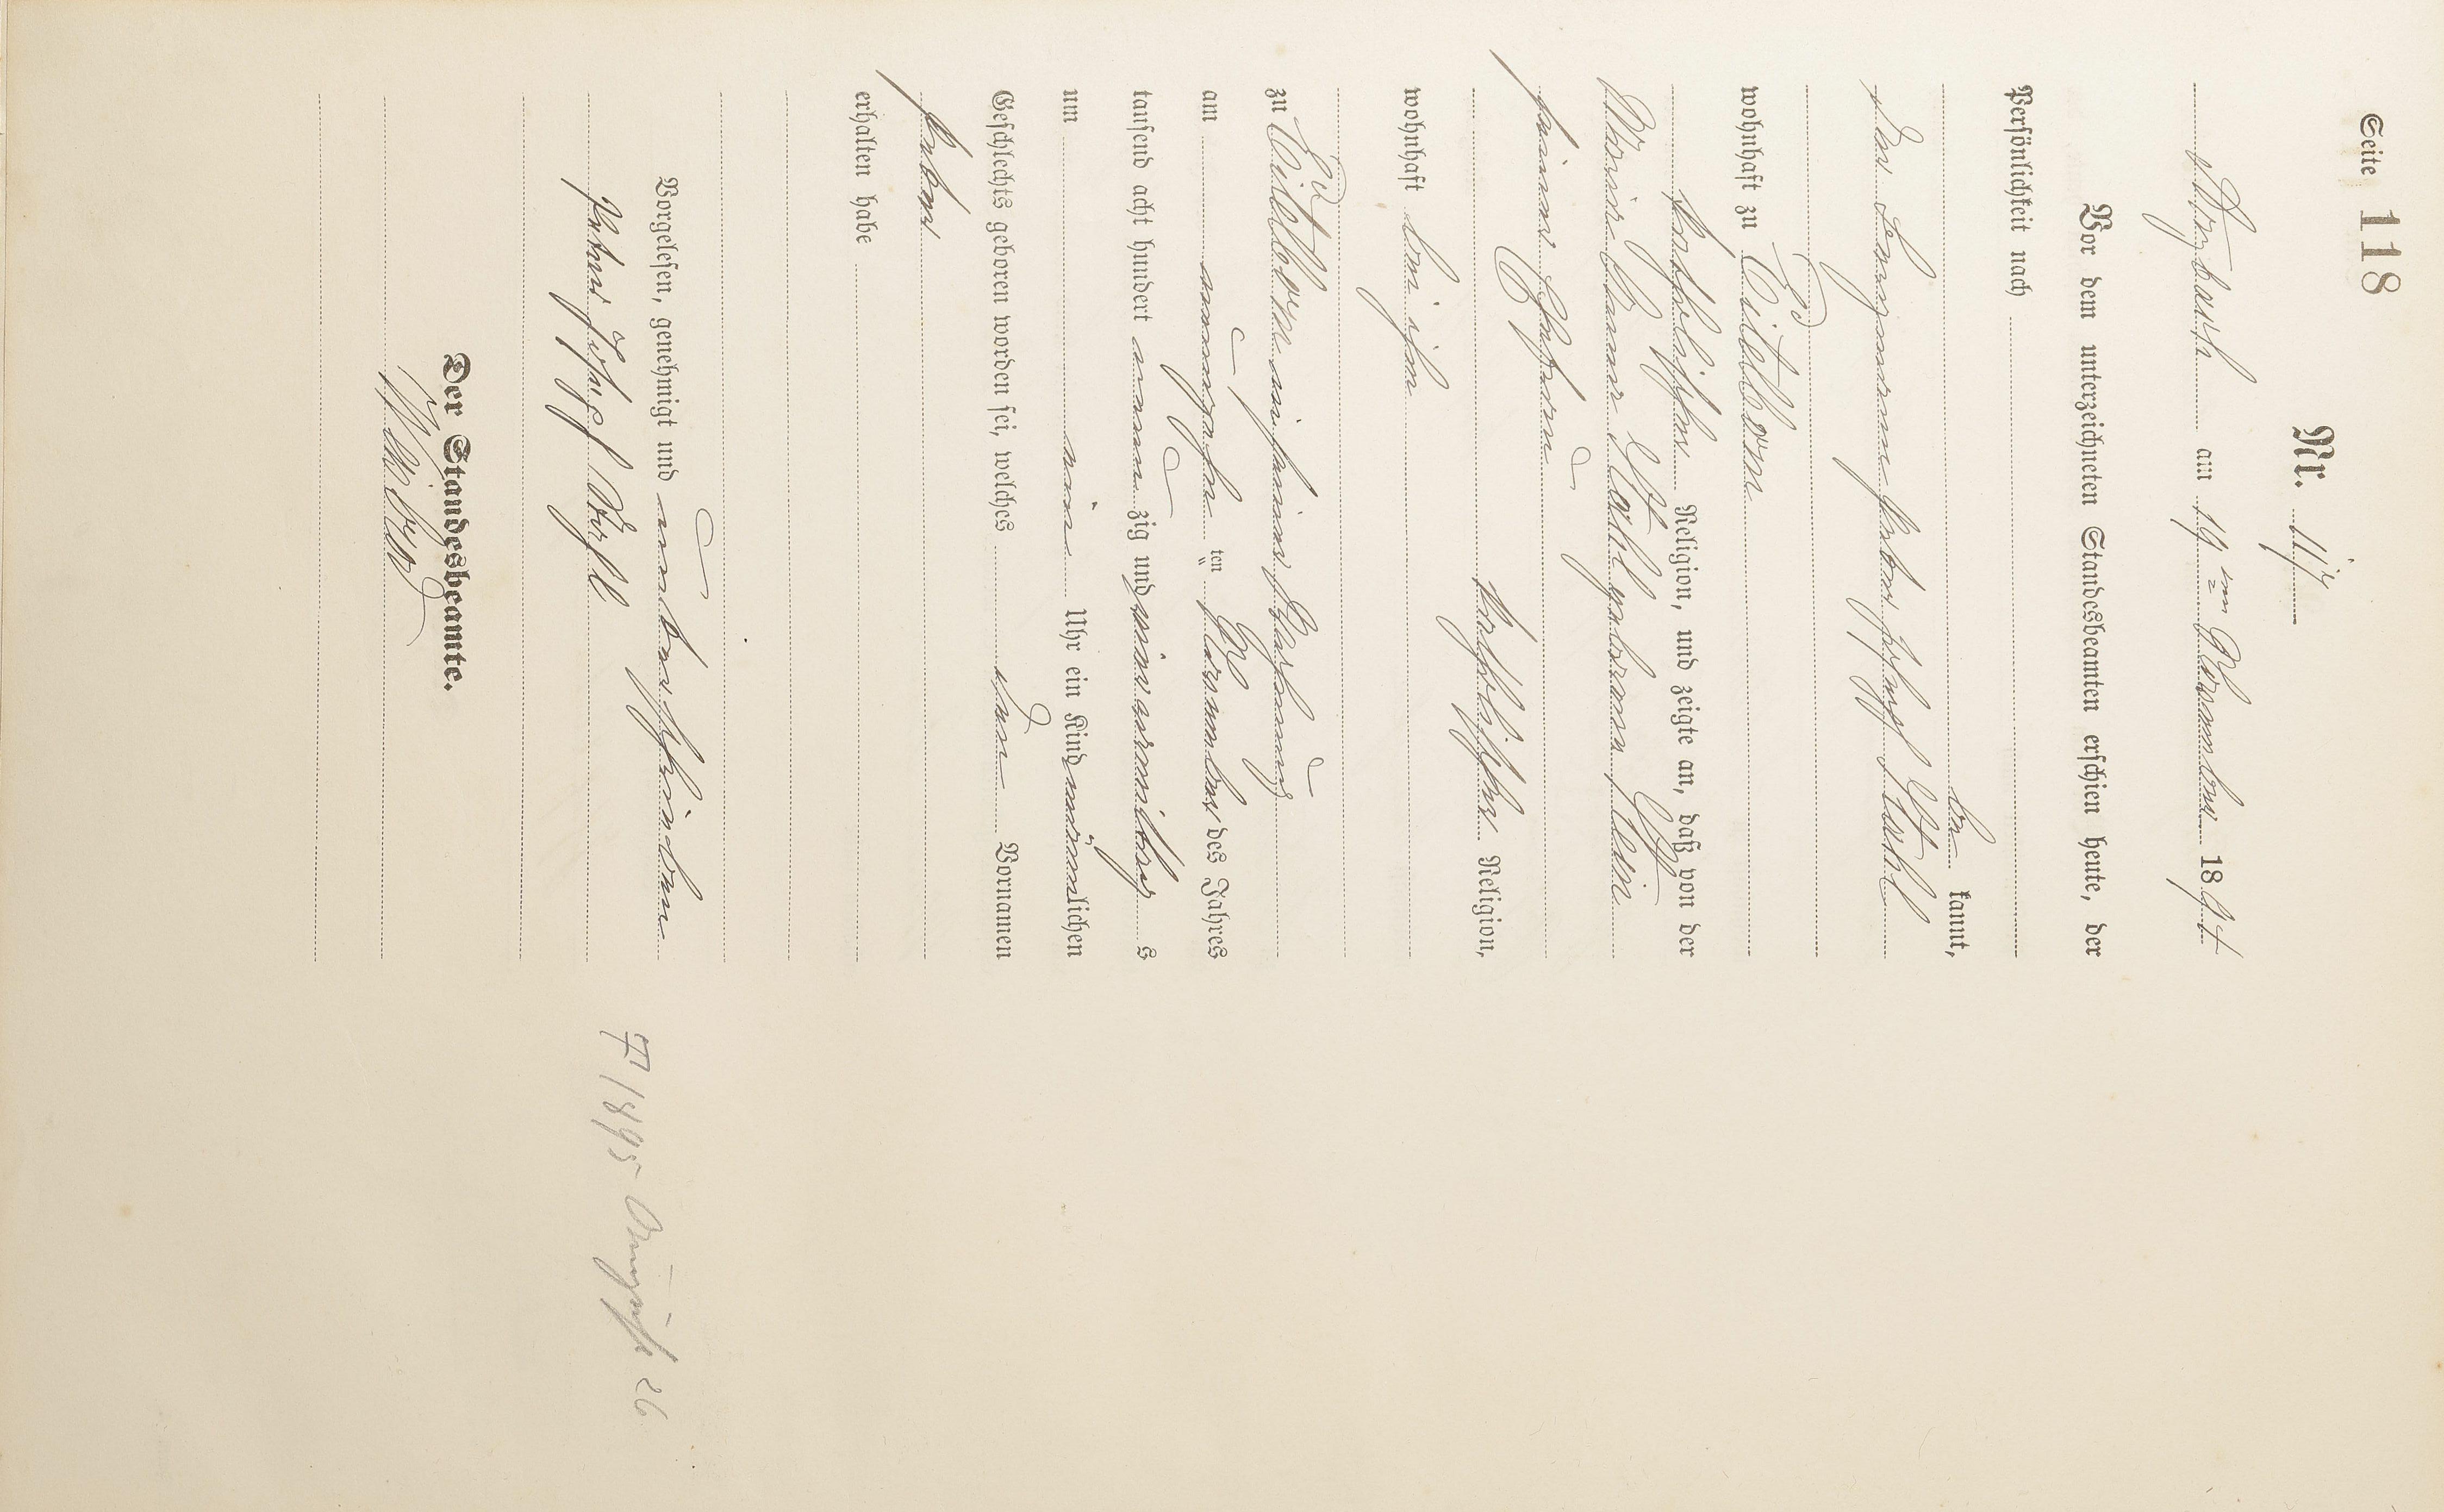 Seite 118
Nr. 117
Arzbach am 19ten November 1894
Vor dem unterzeichneten Standesbeamten erschien heute, der
Persönlichkeit nach
be kannt,
der Peter Joseph Stahl
wohnhaft zu Eitelborn
katholischer Religion, und zeigte an, daß von der
Maria Anna Stahl geborene Klein
seiner Ehefrau
katholischer Religion,
wohnhaft bei ihm
zu Eitelborn in seiner Wohnung
am neunzehn ten November des Jahres
tausend acht hundert neun zig und vier vormittag s
um ein Uhr ein Kind männlichen
Geschlechts geboren worden sei, welches den Vornamen
Peter
erhalten habe
Vorgelesen, genehmigt und unterschrieben
Peter Josef Stahl
Der Standesbeamte.
† 1895 August 26